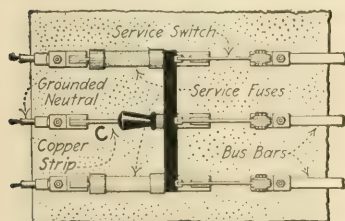 Service Switch
Grounded
Neutral
Service Fuses
C
Copper
Strip
Bus Bars